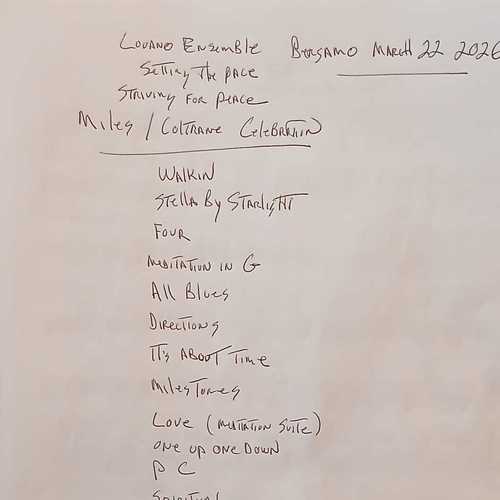 Lovano Ensemble Bergamo March 22 2026
Setting the pace
Striving for peace
Miles / Coltrane Celebration
Walkin
Stella By Starlight
Four
Meditation in G
All Blues
Directions
It's About Time
Milestones
Love (Meditation Suite)
One up one Down
P C
Spiritual